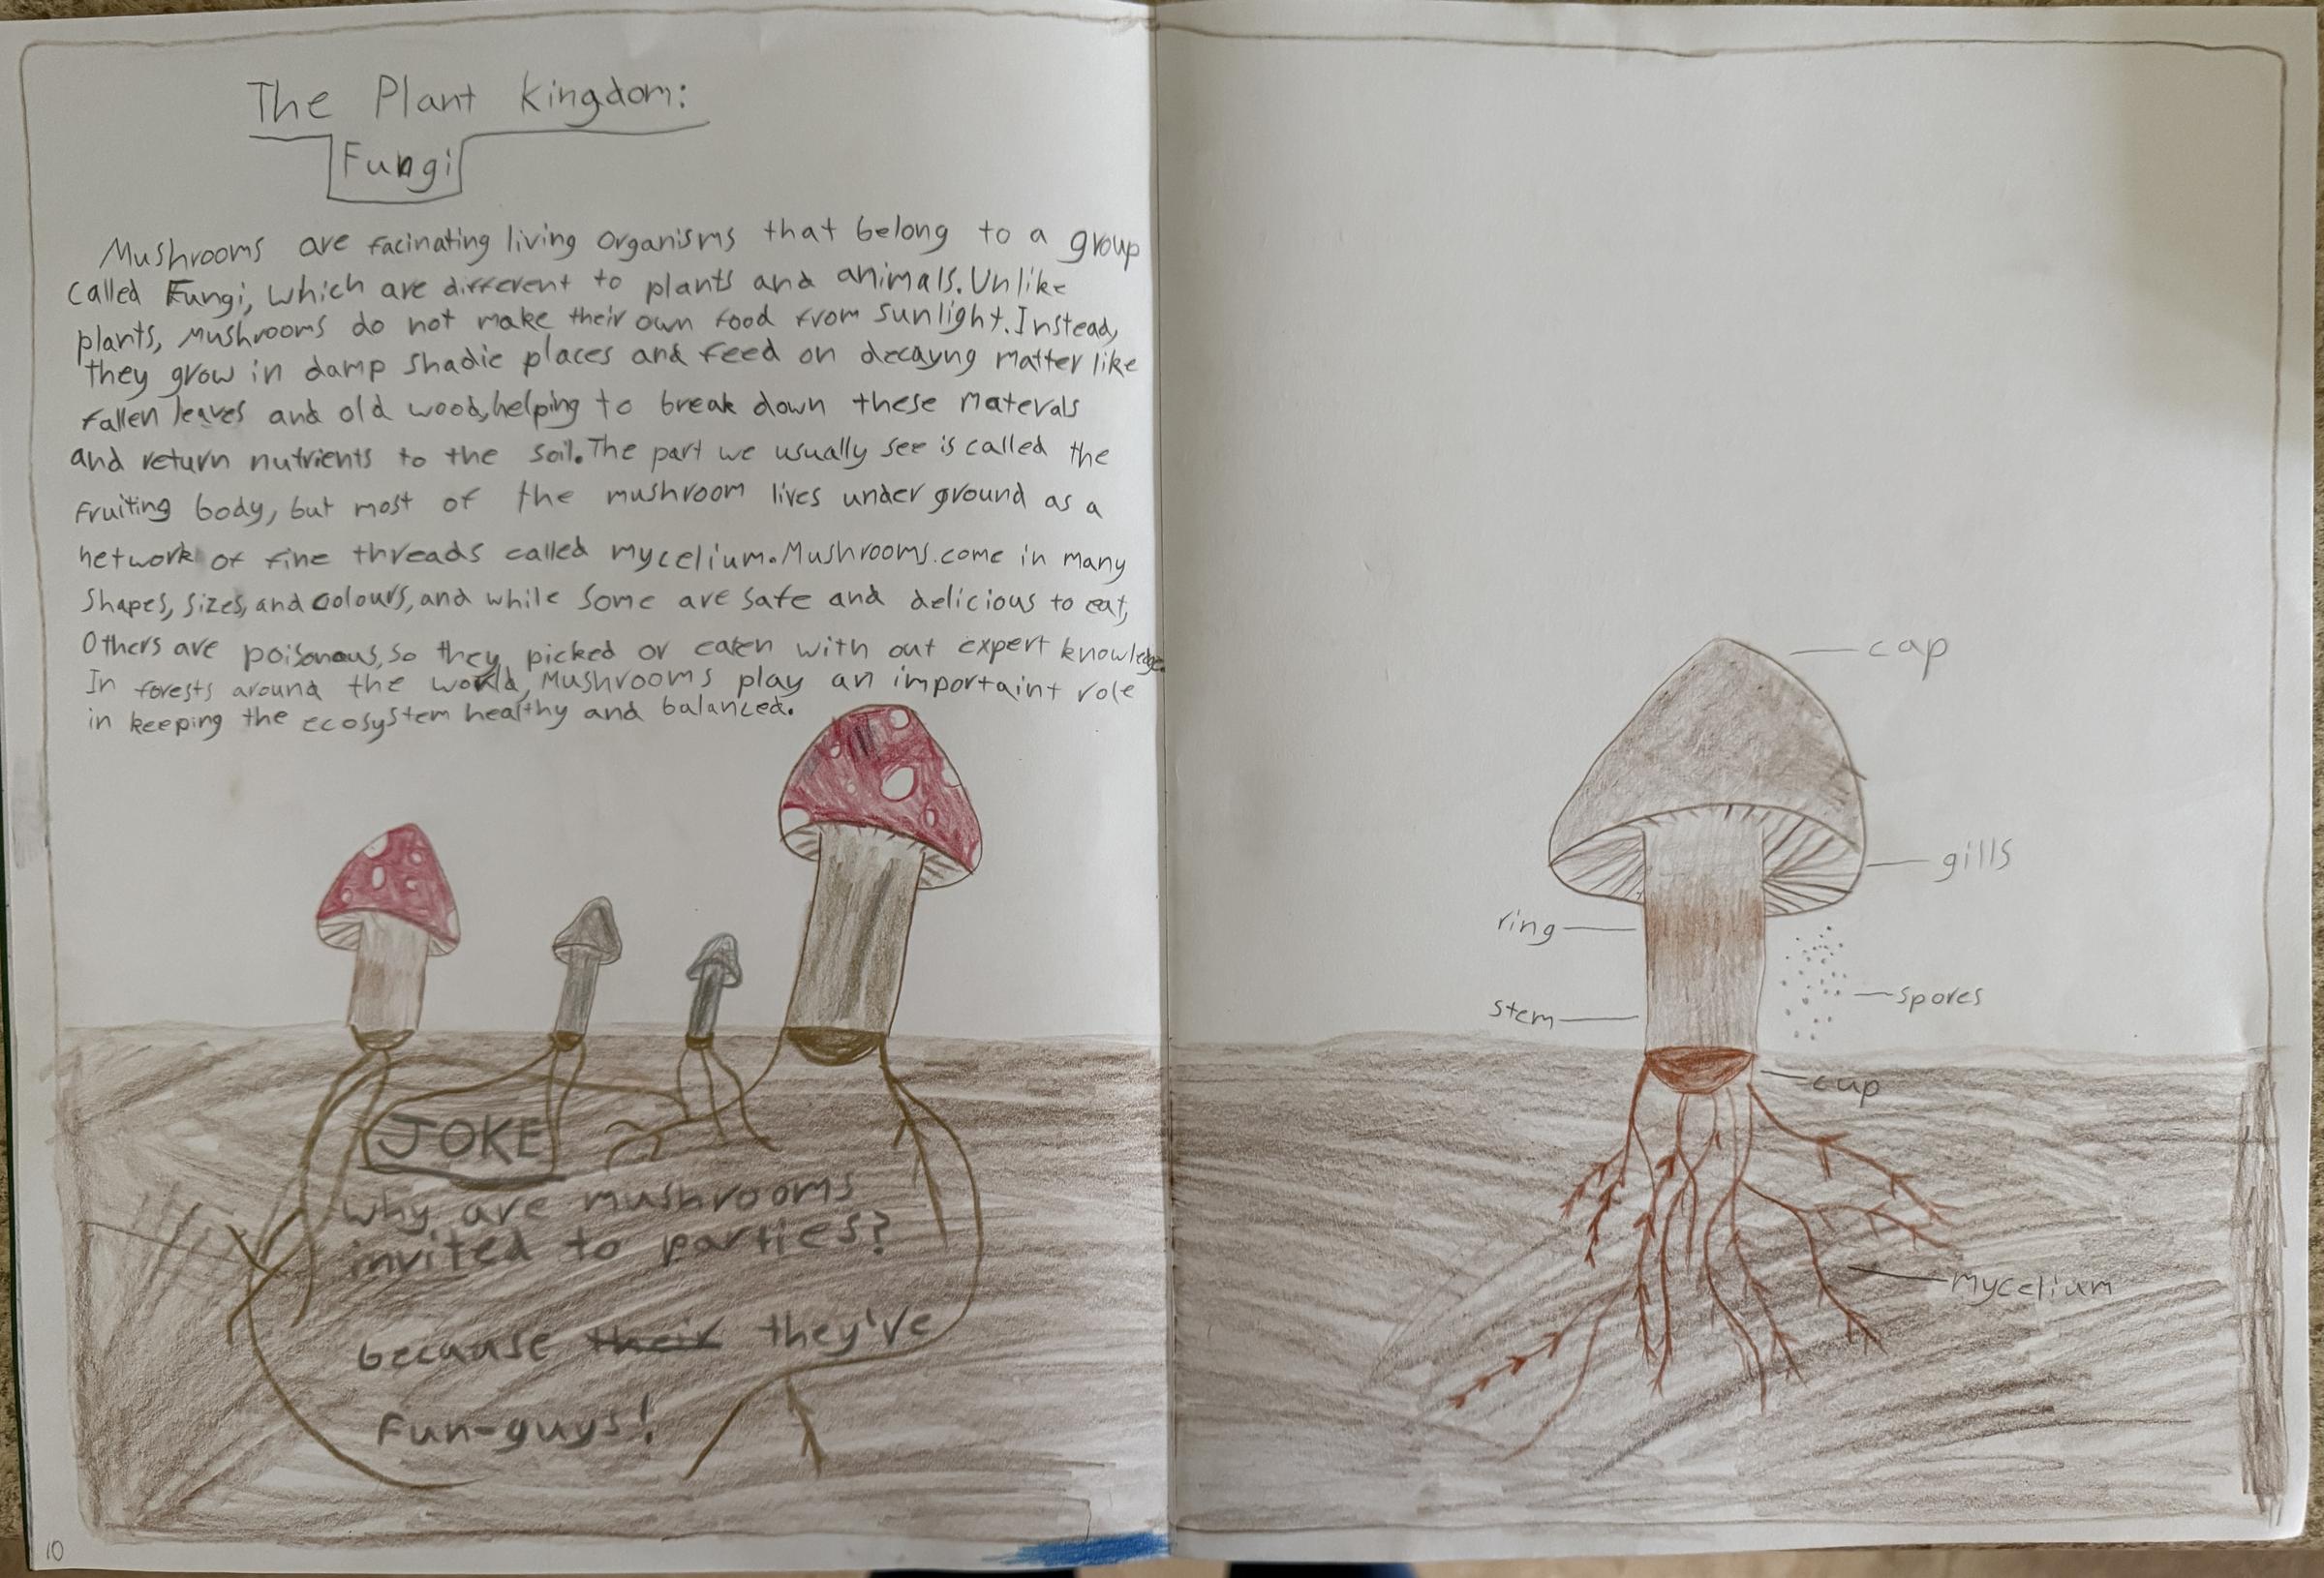 The Plant Kingdom:
Fungi
Mushrooms are facinating living organisms that belong to a group
called Fungi, which are different to plants and animals. Unlike
plants, mushrooms do not make their own food from sunlight. Instead,
they grow in damp shadie places and feed on decayng matter like
fallen leaves and old wood, helping to break down these materals
and return nutrients to the soil. The part we usually see is called the
fruiting body, but most of the mushroom lives under ground as a
network of fine threads called mycelium. Mushrooms come in many
shapes, sizes, and colours, and while some are safe and delicious to eat,
Others are poisonous, so they picked or eaten with out expert knowledge.
In forests around the world, mushrooms play an importaint role
in keeping the ecosystem healthy and balanced.
JOKE
why are mushrooms
invited to parties?
because their they've
fun-guys!
10
cap
gills
ring
spores
stem
cup
mycelium